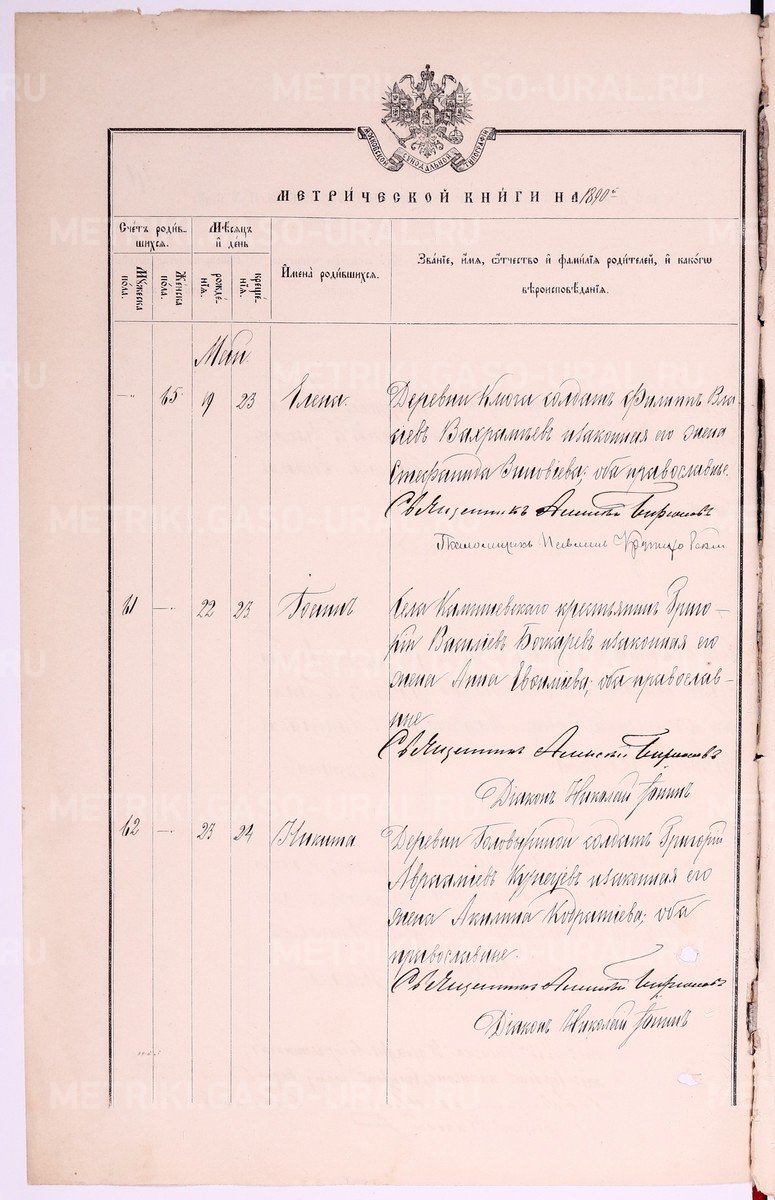 МОСКОВСКОЙ СѴНОДАЛЬНОЙ ТИПОГРАФІИ
МЕТРИ́ЧЕСКОЙ КНИ́ГИ НА 1890й
Сче́тъ роди́в-
шихся.
Мꙋ́жеска
по́ла.
Же́нска
по́ла.
Мѣ́сяцъ
и҆ де́нь
рожде́-
нїѧ.
креще́-
нїѧ.
И҆мена̀ роди́вшихся.
Зва́нїе, и҆́мѧ, ѻ҆́тчество и҆ фами́лїѧ роди́телей, и҆ како́гѡ
вѣроисповѣ́данїѧ.
Май
—„— 65 19 23 Елена.
Деревни Ключа солдатъ Филиппъ Вла-
сіевъ Вахрамѣевъ и законная его жена
Стефанида Зиновіева; оба православные.
Священникъ Алексѣй
Псаломщикъ
61 —„— 22 23 Іоаннъ
Села Камышевскаго крестьянинъ Григо-
рій Василіевъ Бочкаревъ и законная его
жена Анна Евѳиміева; оба православ-
ные.
Священникъ Алексѣй
Діаконъ Николай
62 —„— 23 24 Никита
Деревни Головыриной солдатъ Григорій
Авраамiевъ Кузнецовъ и законная его
жена Акилина Кодратіева; оба
православные.
Священникъ Алексѣй
Діаконъ Николай
METRIKI.GASO-URAL.RU